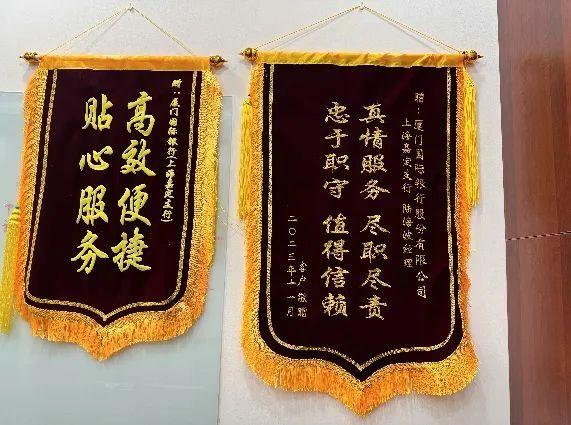 赠：厦门国际银行(上海嘉定支行)
高效便捷
贴心服务
赠：厦门国际银行股份有限公司
上海嘉定支行 陆海波经理
真情服务 尽职尽责
忠于职守 值得信赖
客户 敬赠
二〇二三年十一月